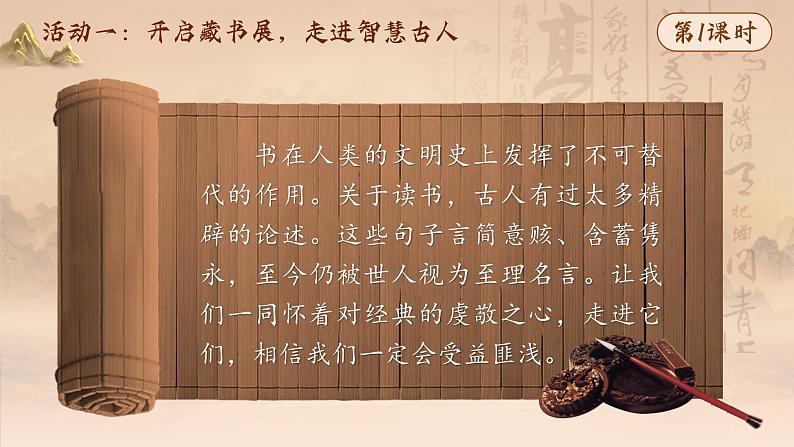 活动一：开启藏书展，走进智慧古人
第1课时
书在人类的文明史上发挥了不可替
代的作用。关于读书，古人有过太多精
辟的论述。这些句子言简意赅、含蓄隽
永，至今仍被世人视为至理名言。让我
们一同怀着对经典的虔敬之心，走进它
们，相信我们一定会受益匪浅。